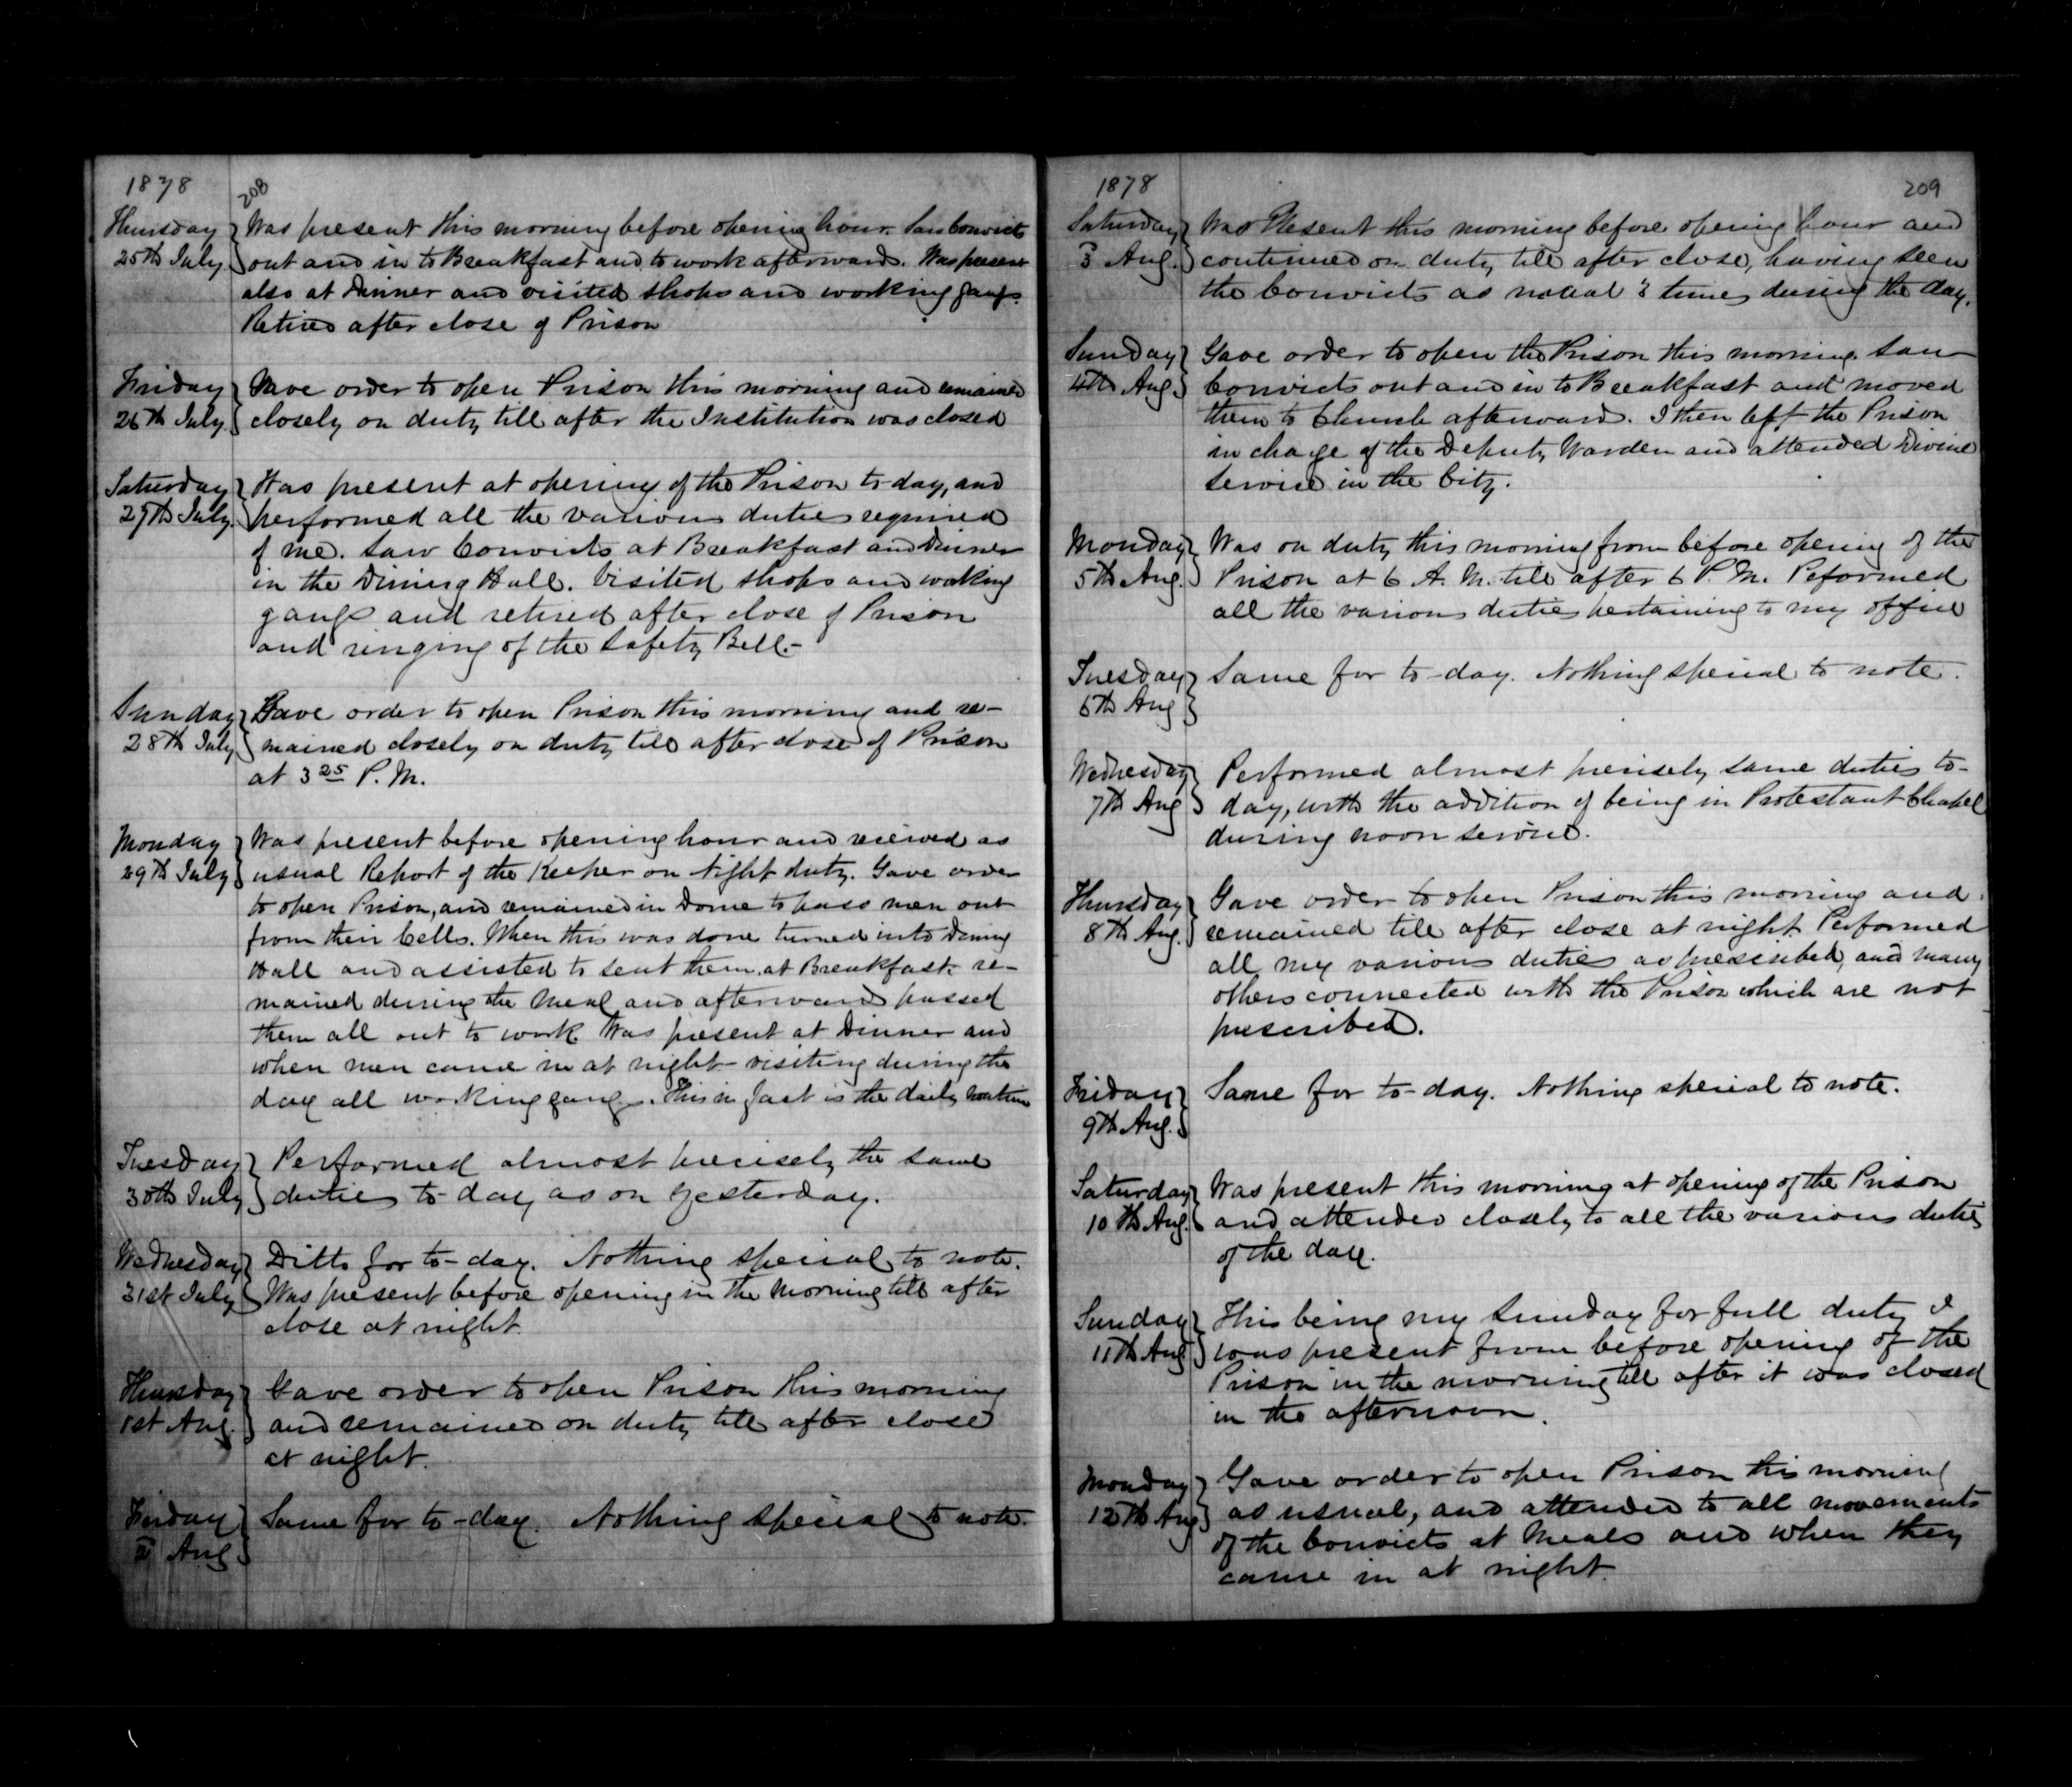 1878
208
Thursday
25th July
Was present this morning before opening hour. Saw Convicts
out and in to Breakfast and to work afterward. Was present
also at Dinner and visited shops and working gangs.
Retired after close of Prison
Friday
26th July
Gave order to open Prison this morning and remained
closely on duty till after the Institution was closed
Saturday
27th July.
Was present at opening of the Prison to day, and
performed all the various duties required
of me. Saw Convicts at Breakfast and Dinner
in the Dining Hall. Visited shops and working
gangs and retired after close of Prison
and ringing of the Safety Bell.-
Sunday
28th July
Gave order to open Prison this morning and re-
mained closely on duty till after close of Prison
at 3 25 P. M.
Monday
29th July
Was present before opening hour and received as
usual Report of the Keeper on Night duty. Gave order
to open Prison, and remained in Dome to pass men out
from their Cells. When this was done turned into Dining
Hall and assisted to seat them at Breakfast. re-
mained during the Meal and afterward passed
them all out to work. Was present at Dinner and
when men came in at night - visiting during the
day all working gangs. This in fact is the daily routine
Tuesday
30th July
Performed almost precisely the same
duties to-day as on Yesterday.
Wednesday
31st July
Ditto for to-day. Nothing special to note.
Was present before opening in the Morning till after
close at night.
Thursday
1st Aug.
Gave order to open Prison this morning
and remained on duty till after close
at night.
Friday
2 Aug
Same for to-day. Nothing special to note.
1878
209
Saturday
3 Aug.
Was Present this morning before opening hour and
continued on duty till after close, having seen
the Convicts as usual 3 times during the day.
Sunday
4th Aug
Gave order to open the Prison this morning. Saw
Convicts out and in to Breakfast and moved
them to Church afterward. I then left the Prison
in charge of the Deputy Warden and attended Divine
Service in the City.
Monday
5th Aug.
Was on duty this morning from before opening of the
Prison at 6 A. M. till after 6 P. M. Peformed
all the various duties pertaining to my office
Tuesday
6th Aug
Same for to-day. Nothing special to note.
Wednesday
7th Aug
Performed almost precisely same duties to-
day, with the addition of being in Protestant Chapel
during noon service.
Thursday
8th Aug.
Gave order to open Prison this morning and
remained till after close at night. Performed
all my various duties as prescribed, and many
others connected with the Prison which are not
prescribed.
Friday
9th Aug.
Same for to-day. Nothing special to note.
Saturday
10th Aug.
Was present this morning at opening of the Prison
and attended closely to all the various duties
of the day.
Sunday
11th Aug
This being my Sunday for full duty I
was present from before opening of the
Prison in the morning till after it was closed
in the afternoon.
Monday
12th Aug
Gave order to open Prison this morning
as usual, and attended to all movements
of the Convicts at Meals and when they
came in at night.